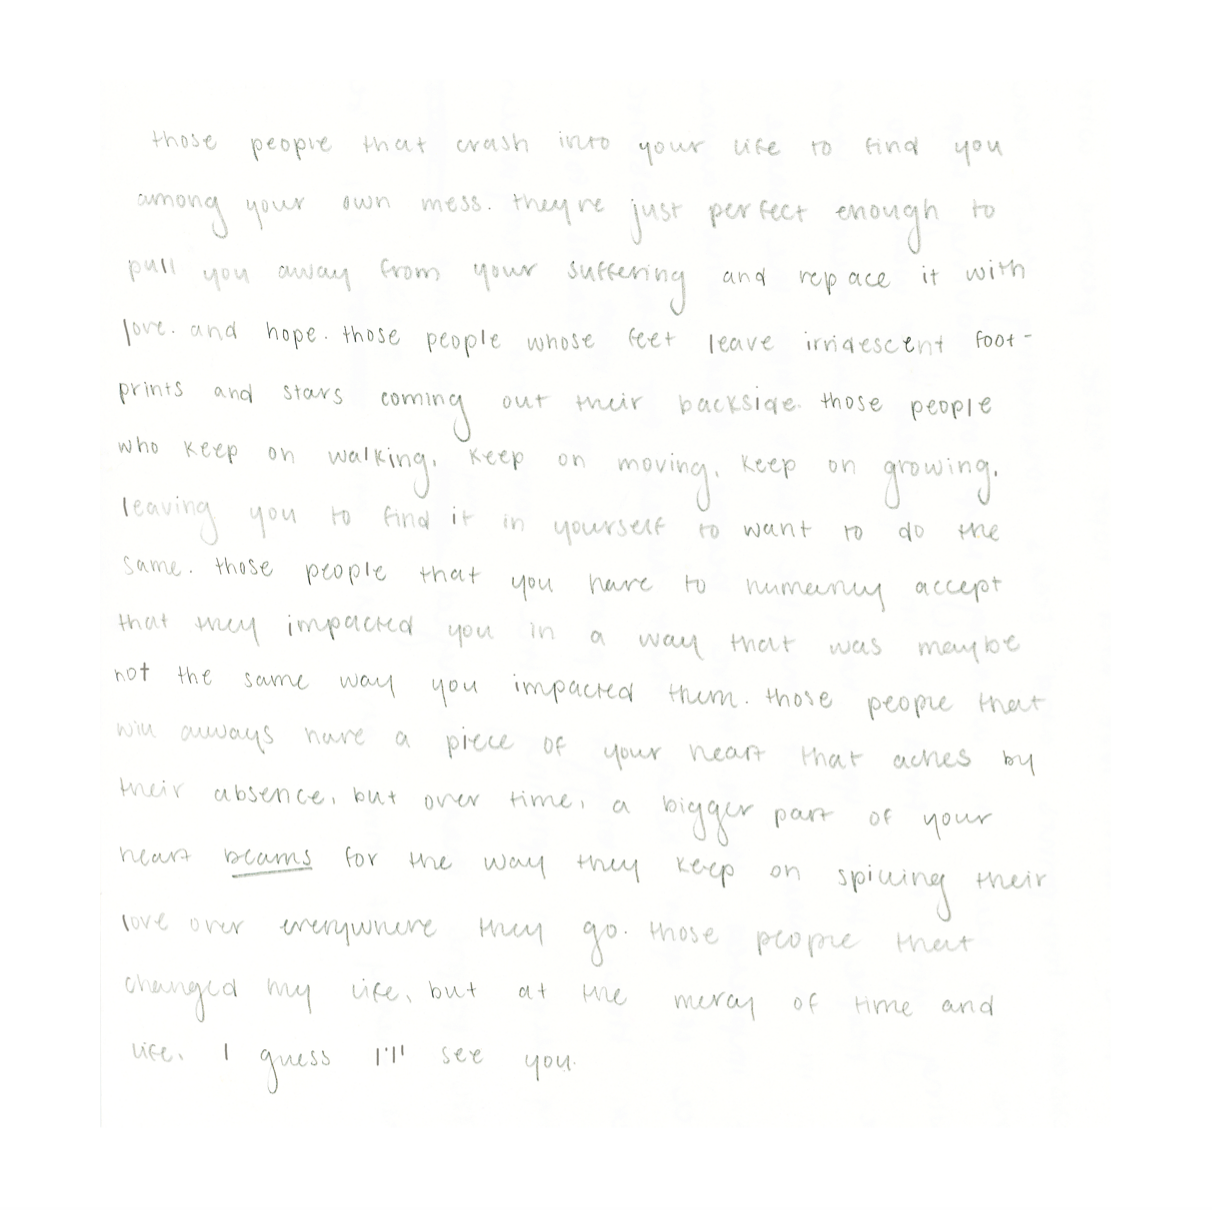 those people that crash into your life to find you
among your own mess. they're just perfect enough to
pull you away from your suffering and repace it with
love. and hope. those people whose feet leave irridescent foot-
prints and stars coming out their backside. those people
who keep on walking, keep on moving, keep on growing,
leaving you to find it in yourself to want to do the
same. those people that you have to humanly accept
that they impacted you in a way that was maybe
not the same way you impacted them. those people that
will always have a piece of your heart that aches by
their absence, but over time, a bigger part of your
heart beams for the way they keep on spilling their
love over everywhere they go. those people that
changed my life, but at the mercy of time and
life, I guess I'll see you.